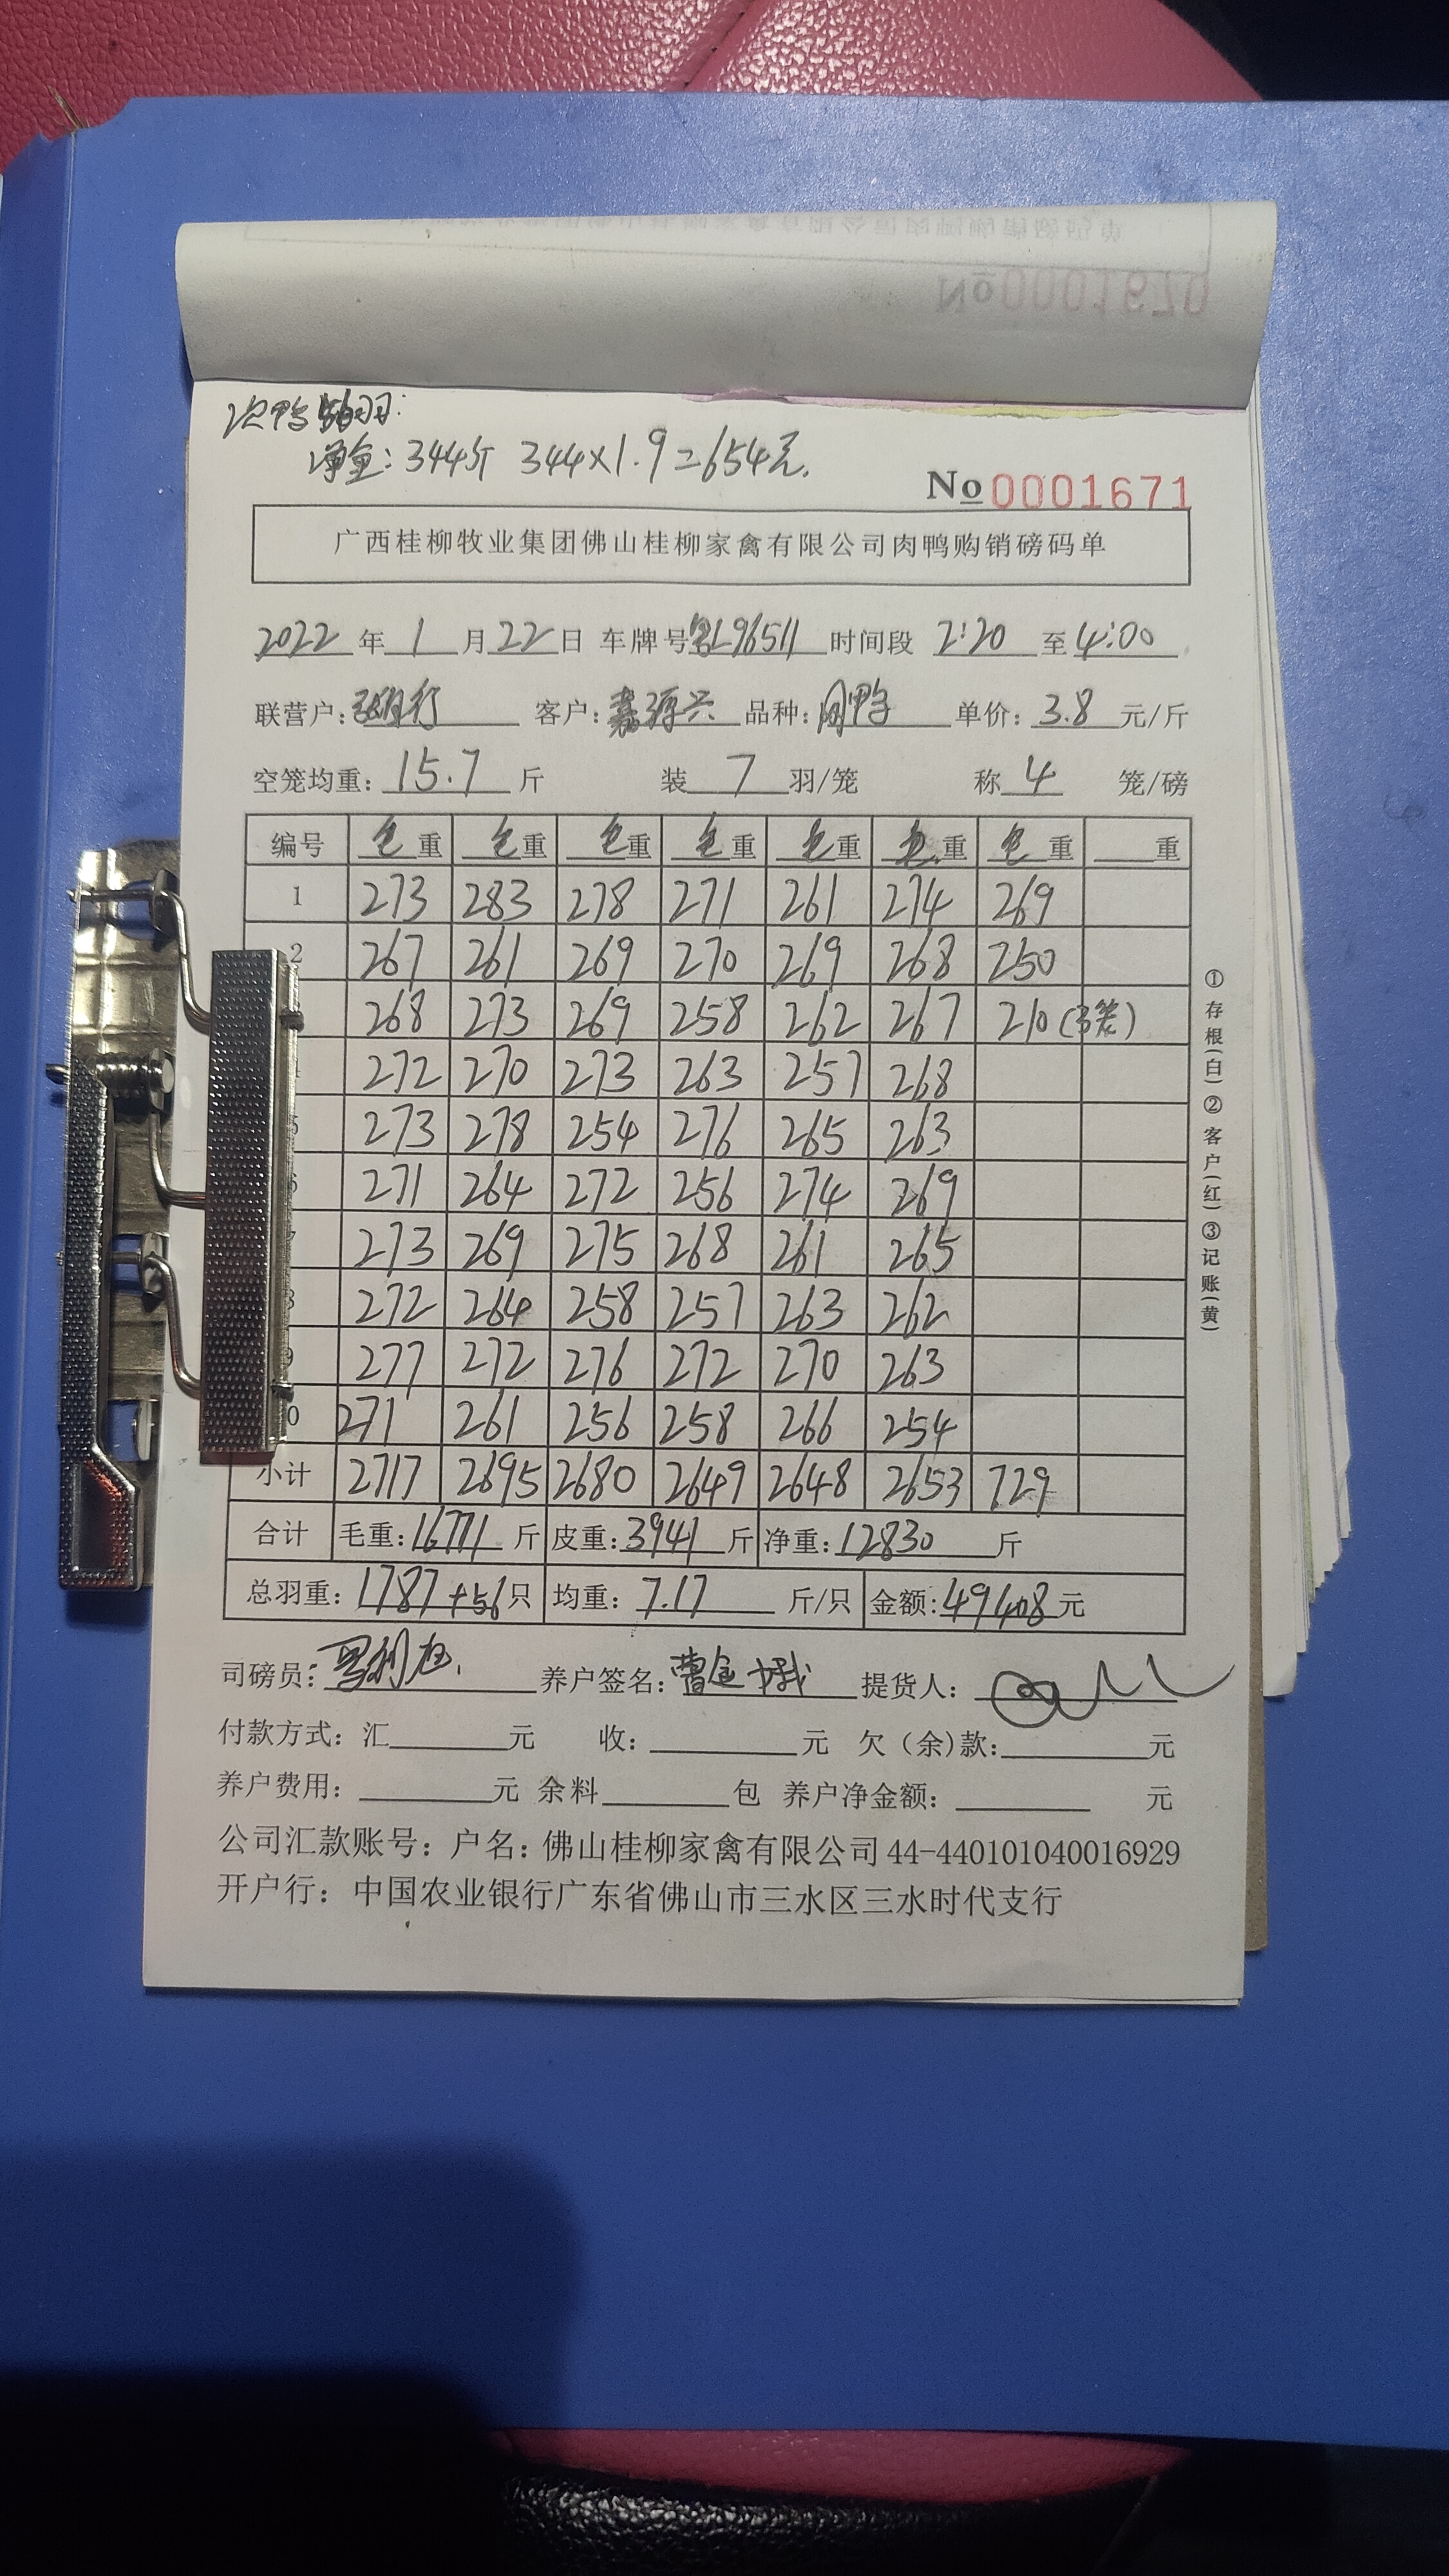 次鸭
净重：344斤 344×1.9=654元.
No 0001671
广西桂柳牧业集团佛山桂柳家禽有限公司肉鸭购销磅码单
2022年1月22日 车牌号L96511 时间段 2:20 至 4:00
联营户： 客户：嘉源兴 品种： 单价：3.8元/斤
空笼均重：15.7斤 装7羽/笼 称4笼/磅
编号 毛重 毛重 毛重 毛重 毛重 毛重 毛重 重
1 273 283 278 271 261 274 269
2 267 261 269 270 269 268 250
268 273 269 258 262 267 210(3笼)
272 270 273 263 257 268
5 273 278 254 276 265 263
6 271 264 272 256 274 269
7 273 269 275 268 261 265
8 272 264 258 257 263 262
9 277 272 276 272 270 263
0 271 261 256 258 266 254
小计 2717 2695 2680 2649 2648 2653 729
合计 毛重：16771斤 皮重：3941斤 净重：12830斤
总羽重：1787+56只 均重：7.17斤/只 金额：49408元
司磅员： 养户签名：曹金 提货人：
付款方式：汇 元 收： 元 欠（余）款： 元
养户费用： 元 余料 包 养户净金额： 元
公司汇款账号：户名：佛山桂柳家禽有限公司 44-440101040016929
开户行：中国农业银行广东省佛山市三水区三水时代支行
①存根(白)②客户(红)③记账(黄)